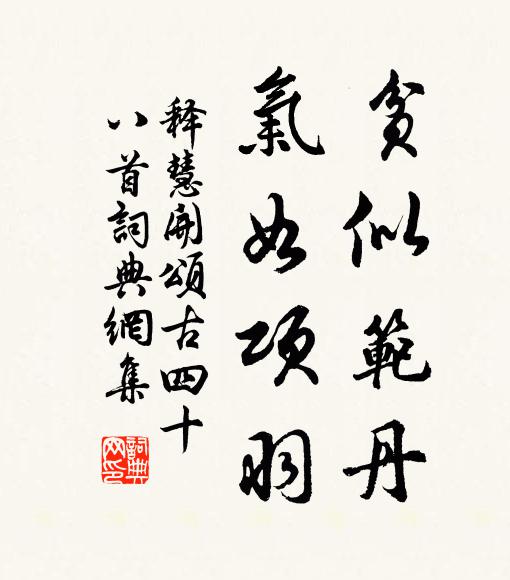 貧似範丹
氣如項羽
释慧開頌古四十
八首詞典網集
詞典
网印